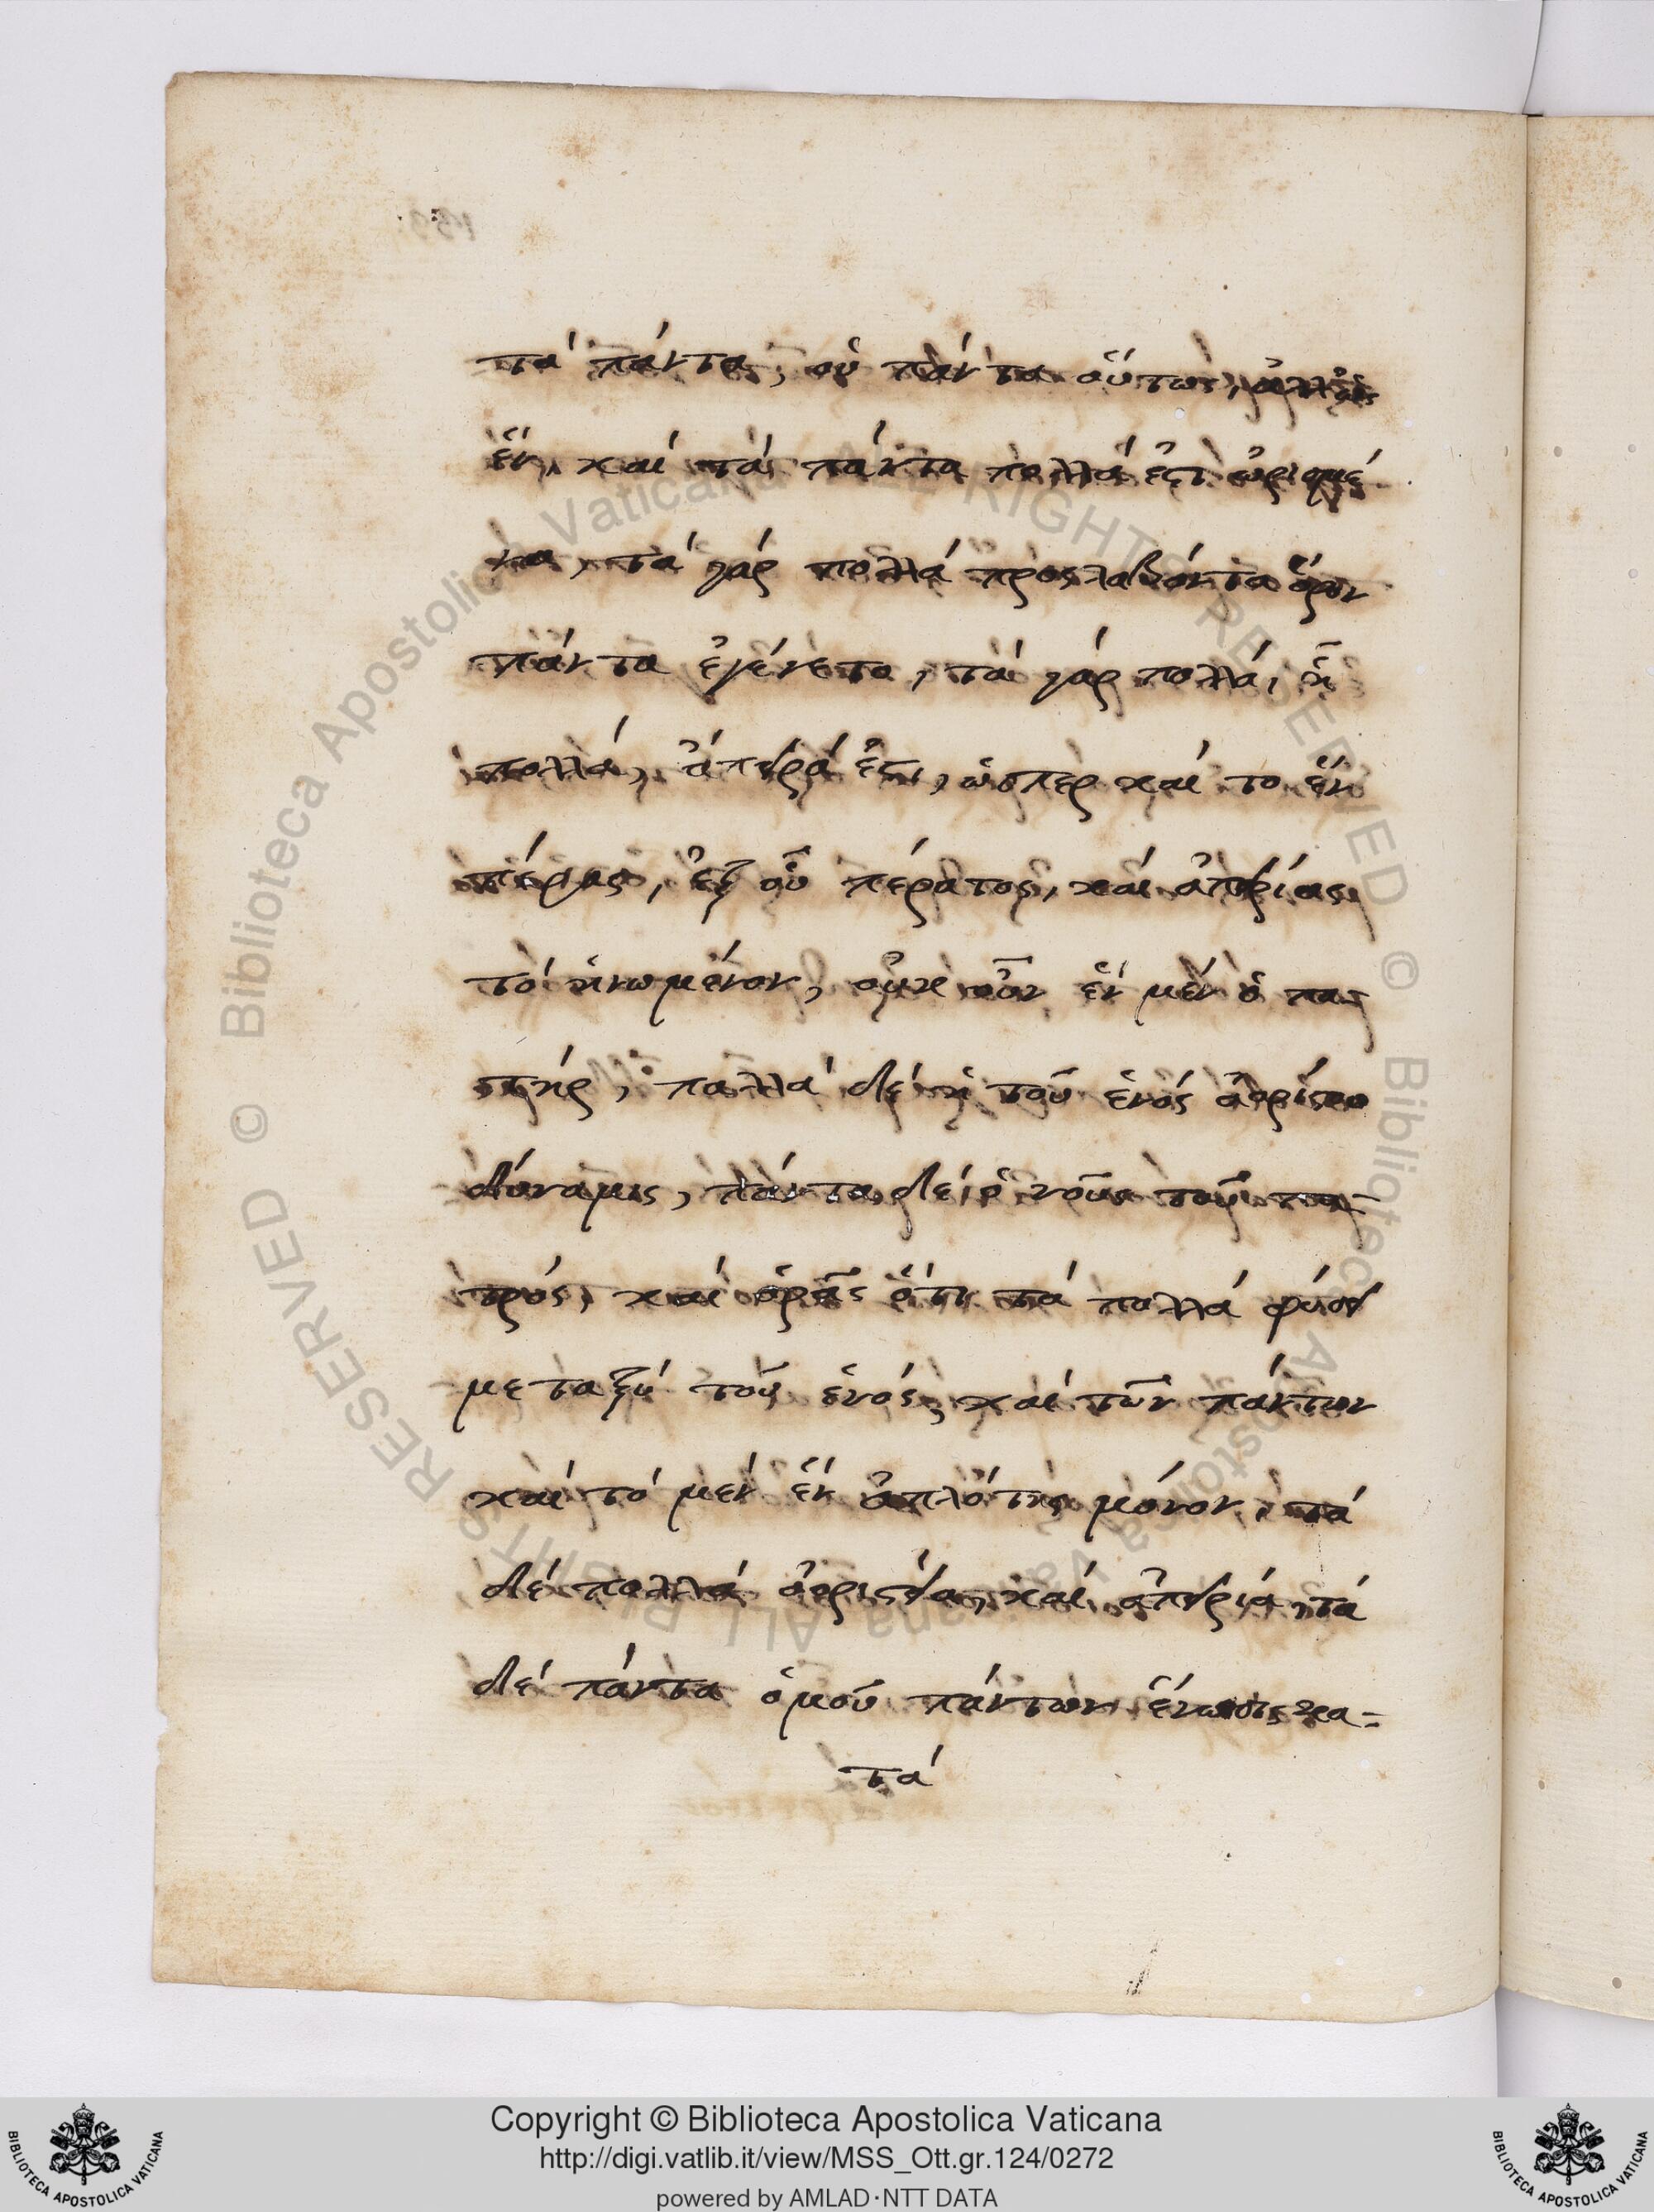 τὰ πάντα, οὐ πάντα οὕτως, ἀλλ' ὡς
ἕν, καὶ τὰ πάντα πολλά ἐστ ὡρισμέ
να, τὰ γάρ πολλά προσλαβόντα ὅρον
πάντα ἐγένετο, τὰ γάρ πολλά, ᾗ
πολλά, ἄπειρά ἐστι, ὥσπερ καί το ἕν
πέρας, ἐξ οὗ πέρατος, καί ἀπειρίας
τό ἡνωμένον, οὐκ οὖν ἕν μέν ὁ πα
τήρ, πολλά δέ ἡ τοῦ ἑνός ἀόριστο
δύναμις, πάντα δέ ὁ νοῦς τοῦ πα
τρός, καί ὁρᾷς ὅτι τά πολλά φύσει
μεταξύ τοῦ ἑνός, καί τῶν πάντων
καί τό μέν ἕν ἁπλότης μόνον, τά
δέ πολλά ἀοριστία, καί ἀπειρία, τά
δέ πάντα ὁμοῦ πάντων ἕνωσις κα=
τά
Copyright © Biblioteca Apostolica Vaticana
http://digi.vatlib.it/view/MSS_Ott.gr.124/0272
powered by AMLAD·NTT DATA
BIBLIOTECA APOSTOLICA VATICANA
BIBLIOTECA APOSTOLICA VATICANA
© Biblioteca Apostolica Vaticana ALL RIGHTS RESERVED © Biblioteca Apostolica Vaticana ALL RIGHTS RESERVED